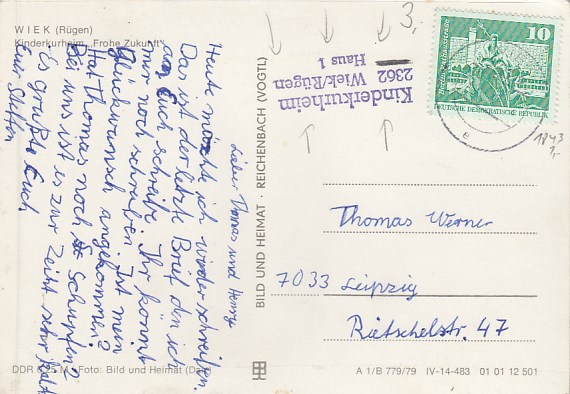 WIEK (Rügen)
Kinderkurheim „Frohe Zukunft"
Lieber Thomas und Henny
Heute möchte ich wieder schreiben.
Das ist der letzte Brief den ich
an Euch schreibe. Ihr könnt
mer noch schreiben. Ist mein
Glückwunsch angekommen?
Hat Thomas noch Schnupfen?
Bei uns ist es zur Zeit sehr kalt
Es grüßt Euch
Euer Steffen
DDR 0,25 M · Foto: Bild und Heimat
BILD UND HEIMAT · REICHENBACH (VOGTL)
3.
Kinderkurheim
2362 Wiek/Rügen
Haus 1
10
DEUTSCHE DEMOKRATISCHE REPUBLIK
e
1843
1,-
Thomas Werner
7033 Leipzig
Rietschelstr. 47
A 1/B 779/79 IV-14-483 01 01 12 501